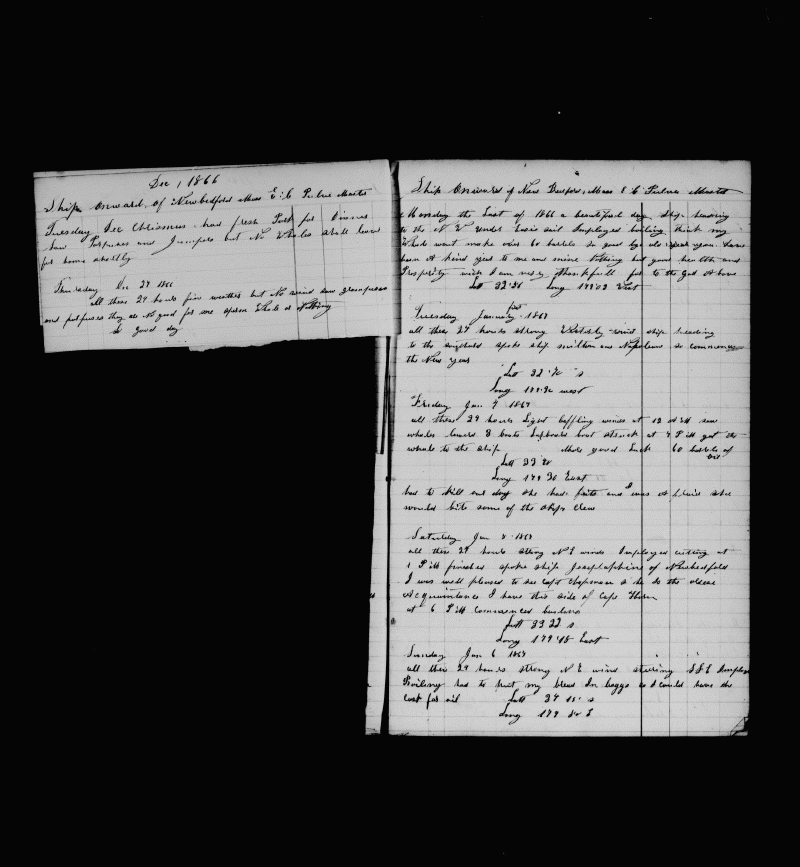 Dec, 1866
Ship Onward, of Newbedford Mass E. C Pulver Master
Tuesday Dec Chrissmus had fresh Pork for Dinner
Saw Porpuses and Jumpers but No Whales shall leave
for home shortly
Thursday Dec 27 1866
all these 24 hours fine weather but No wind saw grampuses
and porpuses they are No good for me spoken Whale and Nothing
So good day
Ship Onward of New Bedford, Mass E C Pulver Master
Monday the Last of 1866 a beautiful day, Ship heading
to the N E under Easy sail Employed boiling think my
Whale wont make over 60 barrels so good by old year you have
been A kind year to me and mine Nothing but good health and
Prosperity wich I am very thankfull for to the God Above
Lat 32.56 Long 179.02 East
Tuesday January first 1867
all these 24 hours strong Easterly wind ship heading
to the spoke ship milton and Napoleon so commences
the New year
Latt 32.40 s
Long 179.32 west
Friday Jan 4 1867
all these 24 hours Light baffling winds at 12 M saw
whales lowerd 3 boats Larboard boat struck at 4 P M got the
whale to the ship More good luck 60 barrels of
oil
Latt 33.20
Long 179 30 East
had to kill our dog she had fits and I was A fraid she
would bite some of the ships Crew
Saturday Jan 5 1867
all these 24 hours strong N E winds Employed cutting at
1 P M finished spoke ship Josephine of Newbedford
I was well pleased to see capt chapman as he is the oldest
Acquaintance I have this side of Cape Horn
at 6 P M commenced boiling
Latt 33 22 s
Long 179.48 East
Sunday Jan 6 1867
all these 24 hours strong N E wind steering S S E Employed
Boiling had to put my bread In baggs so I could have the
cask for oil Latt 34 10 s
Long 179 50 E